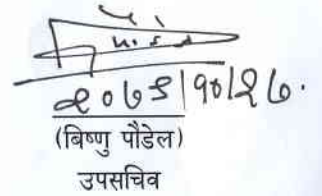 २०७९|१०|२७.
(बिष्णु पौडेल)
उपसचिव